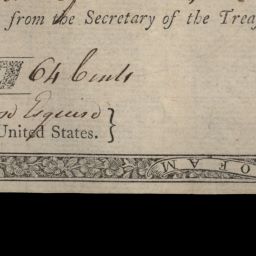 from the Secretary of the Trea
64 Cents
Esquire
United States.
OF AM